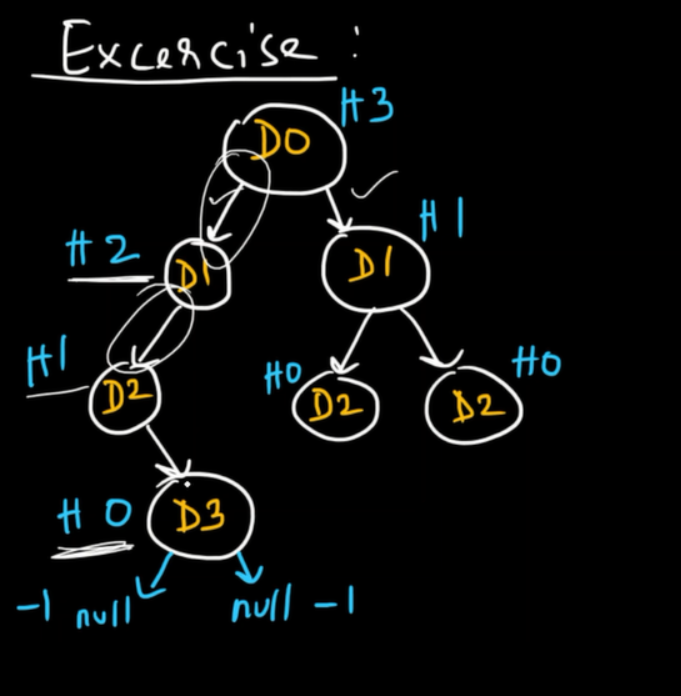 Excercise :
H3
D0
H1
H2
D1
D1
H1
D2
H0
D2
D2
H0
H0
D3
-1 null
null -1